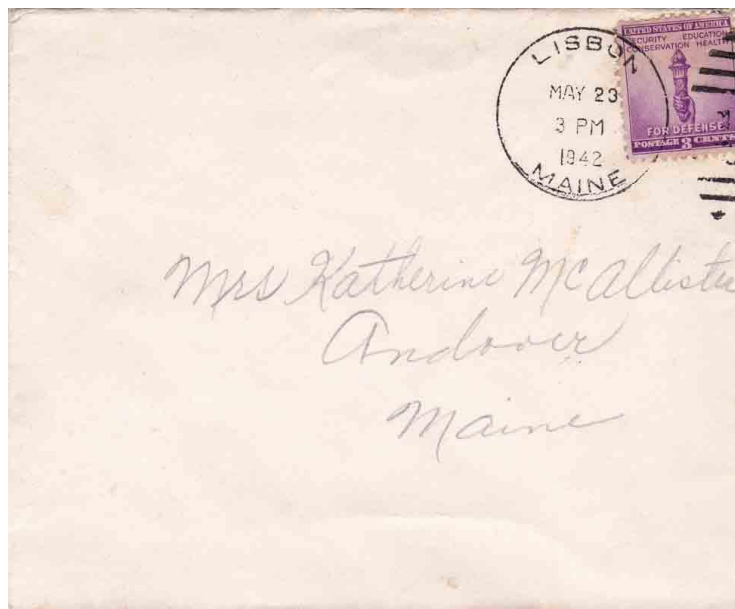 LISBON
MAY 23
3 PM
1942
MAINE
UNITED STATES OF AMERICA
SECURITY EDUCATION
CONSERVATION HEALTH
FOR DEFENSE
POSTAGE 3 CENTS
Mrs Katherine McAllister
Andover
Maine